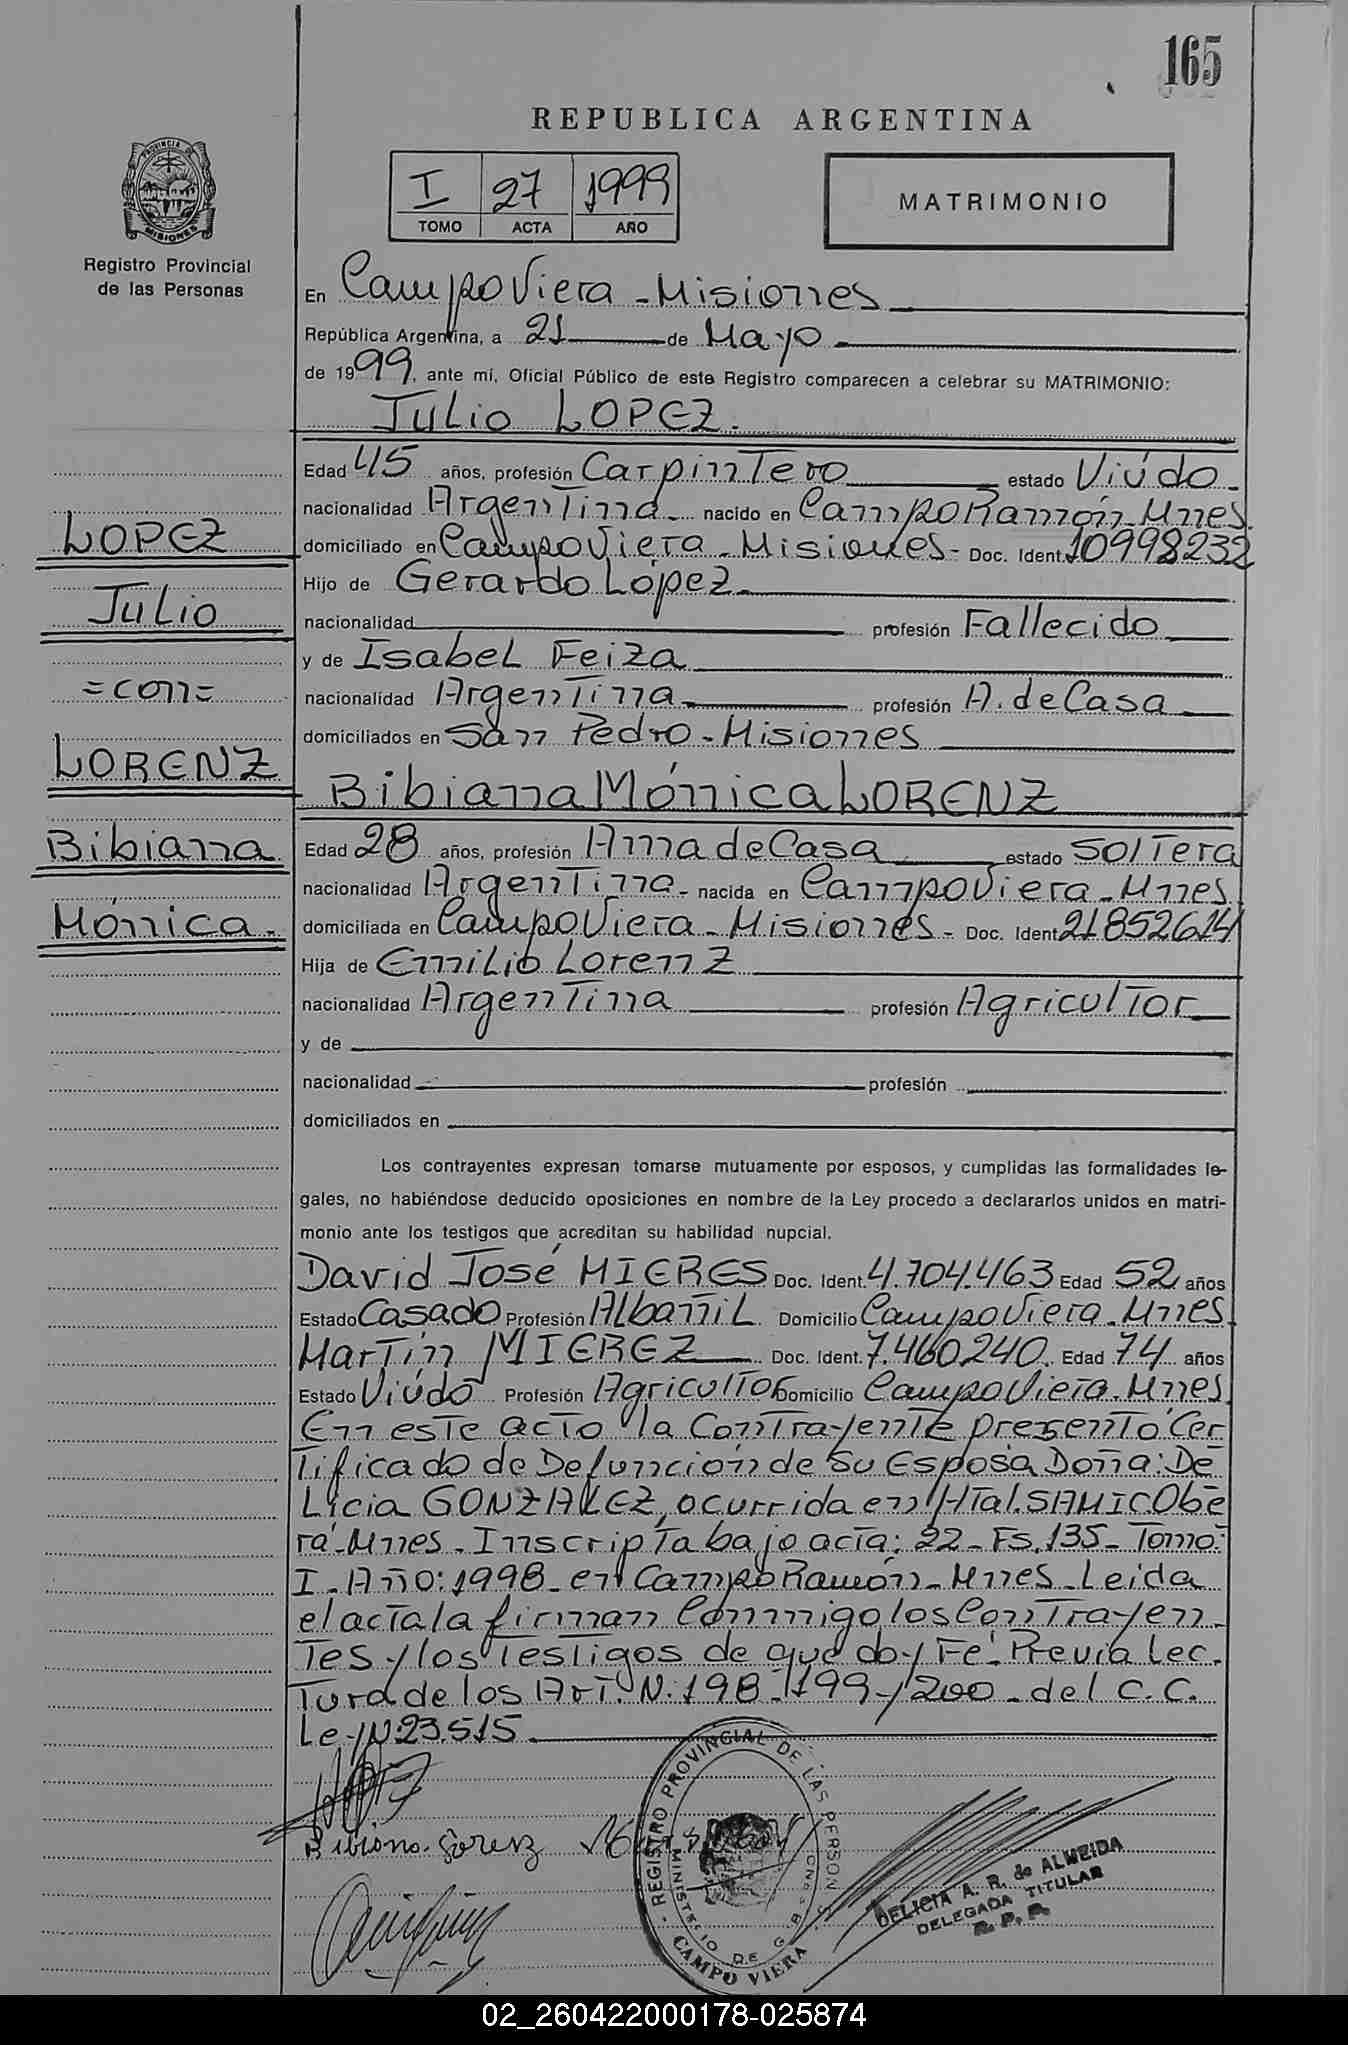 165
REPUBLICA ARGENTINA
I 27 1999
TOMO ACTA AÑO
MATRIMONIO
PROVINCIA DE MISIONES
Registro Provincial
de las Personas
En Campo Viera - Misiones
República Argentina, a 21 de Mayo
de 1999, ante mí, Oficial Público de este Registro comparecen a celebrar su MATRIMONIO:
Julio LOPEZ.
Edad 45 años, profesión Carpintero estado Viúdo
nacionalidad Argentina nacido en Campo Ramón - Mnes.
domiciliado en Campo Viera - Misiones - Doc. Ident. 10998232
Hijo de Gerardo López
nacionalidad profesión Fallecido
y de Isabel Feiza
nacionalidad Argentina profesión A. de Casa
domiciliados en San Pedro - Misiones
Bibiana Mónica LORENZ
Edad 28 años, profesión Ama de Casa estado Soltera
nacionalidad Argentina - nacida en Campo Viera - Mnes
domiciliada en Campo Viera - Misiones - Doc. Ident 21852614
Hija de Emilio Lorenz
nacionalidad Argentina profesión Agricultor
y de
nacionalidad profesión
domiciliados en
LOPEZ
Julio
=con=
LORENZ
Bibiana
Mónica.
Los contrayentes expresan tomarse mutuamente por esposos, y cumplidas las formalidades le-
gales, no habiéndose deducido oposiciones en nombre de la Ley procedo a declararlos unidos en matri-
monio ante los testigos que acreditan su habilidad nupcial.
David José MIERES Doc. Ident. 4.704.463 Edad 52 años
Estado Casado Profesión Albañil Domicilio Campo Viera - Mnes
Martín MIEREZ Doc. Ident. 7.460240. Edad 74 años
Estado Viúdo Profesión Agricultor Domicilio Campo Viera - Mnes
En este acto la Contrayente presentó Cer
tificado de Defunción de su Esposa Doña: De
Licia GONZALEZ, ocurrida en Htal. SAMIC Obe
rá - Mnes - Inscripta bajo acta: 22 - Fs. 135 - Tomo:
I - Año: 1998 - en Campo Ramón - Mnes - Leida
el acta la firman Conmigo los Contrayen-
tes y los testigos de que doy Fé. Previa lec.
tura de los Art. N: 198 - 199 - y 200 - del C.C.
Ley N 23.515
Bibiana Lorenz
REGISTRO PROVINCIAL DE LAS PERSON
MINISTERIO DE G
CAMPO VIERA
DELICIA A. R. de ALMEIDA
DELEGADA TITULAR
R. P. P.
02_260422000178-025874